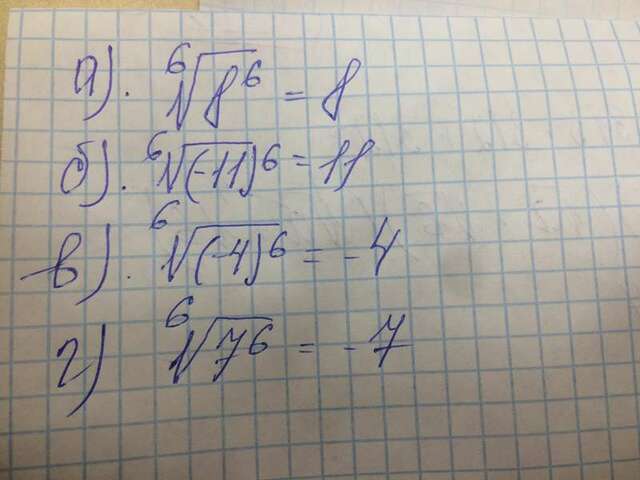 а) ⁶√8⁶ = 8
б) ⁶√(-11)⁶ = 11
в) ⁶√(-4)⁶ = -4
г) ⁶√7⁶ = -7